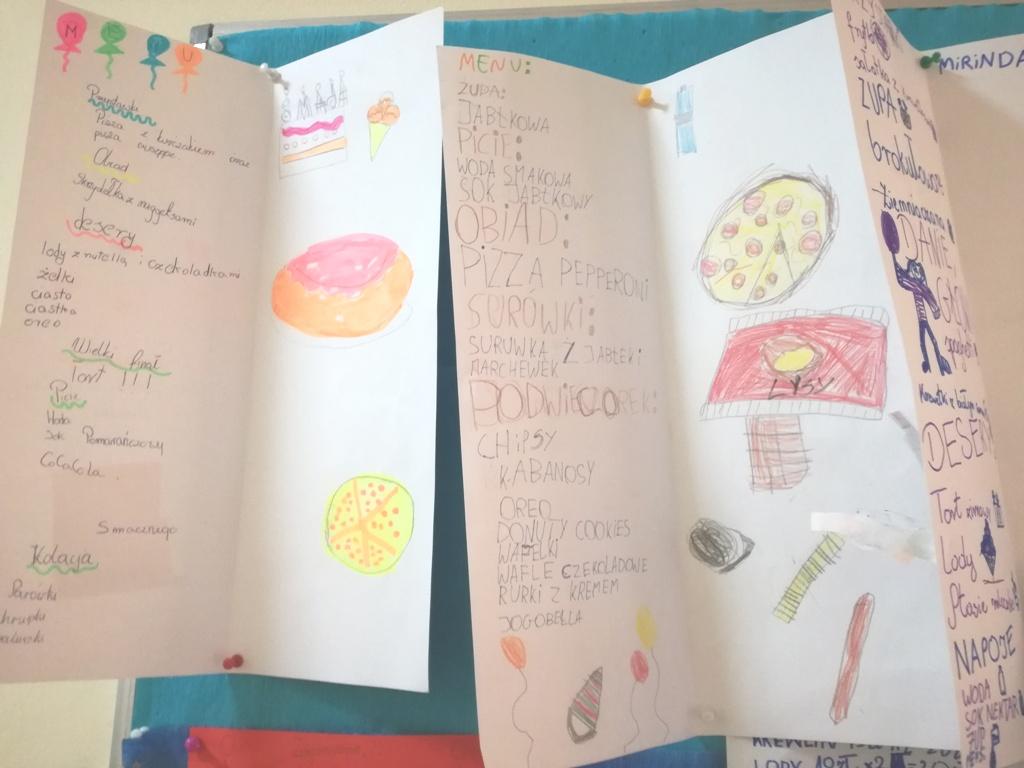 MENU
Pizza z kurczakiem oraz
pizza
Obiad
Skrzydełka z nuggetsami
desery
lody z nutellą i czekoladkami
żelki
ciasto
ciastka
oreo
Wielki finał
Tort !!!
Picie
Woda
Sok Pomarańczowy
CocaCola
Smacznego
Kolacja
Parówki
chrupki
6 MAJA
MENU:
ZUPA:
JABŁKOWA
PICIE:
WODA SMAKOWA
SOK JABŁKOWY
OBIAD:
PIZZA PEPPERONI
SURÓWKI:
SURUWKA Z JABŁEK i
MARCHEWEK
PODWIECZOREK:
CHIPSY
KABANOSY
OREO
DONUTY COOKIES
WAFELKI
WAFLE CZEKOLADOWE
RURKI Z KREMEM
JOGOBELLA
LYSY
ZUPA
brokułowa
Ziemniaczana
DANIE
DESER
Tort zimowy
Lody
Ptasie
NAPOJE
WODA
SOK NEKTAR
MIRINDA
LODY 10 zł x2